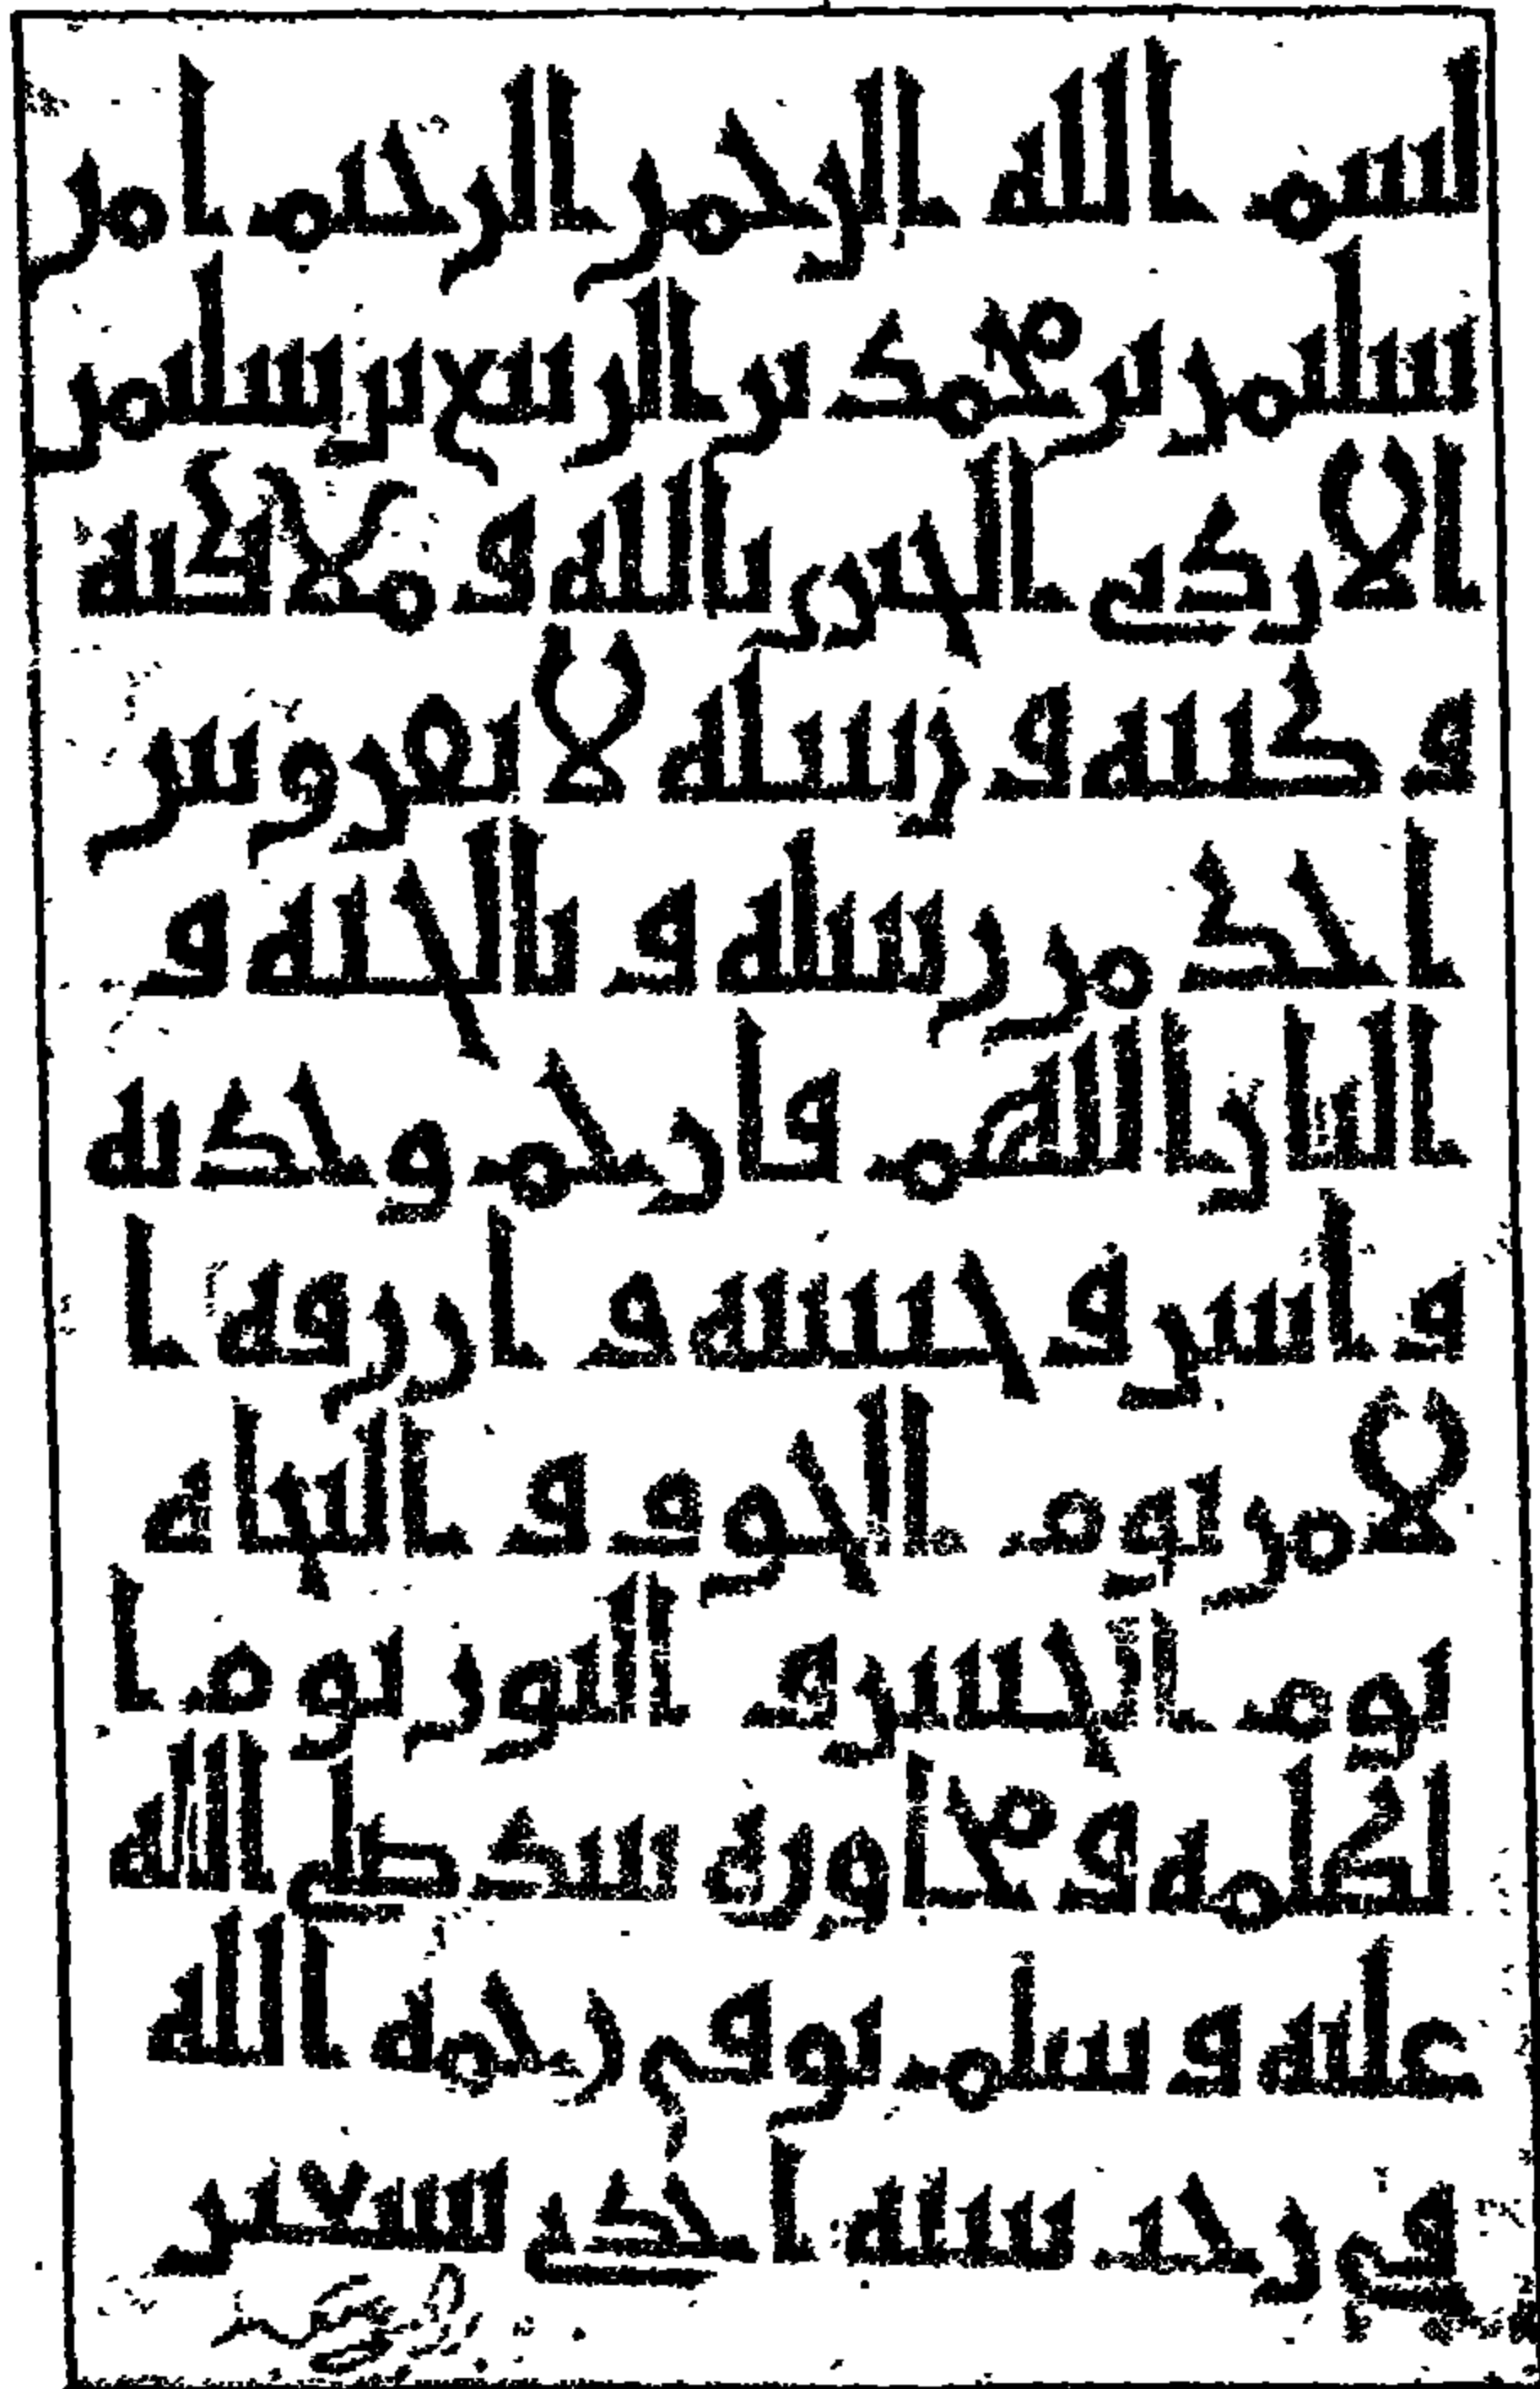 بسم الله الرحمن الرحيم امن
سليمن بن محمد بن الربيع بن سليمن
الازدي الجيزي بالله و ملئكته
و كتبه و رسله لا يفرق بين
احد من رسله و بالجنه و
النار اللهم فارحم وحدته
و انس وحشته و ارزقه ا
لامن يوم الخوف و النجاه
يوم الحسره و النور يوم ا
لظلمه و مجاورة نبيك صلى الله
عليه و سلم توفي رحمه الله
في رجب سنه احدى سبعين